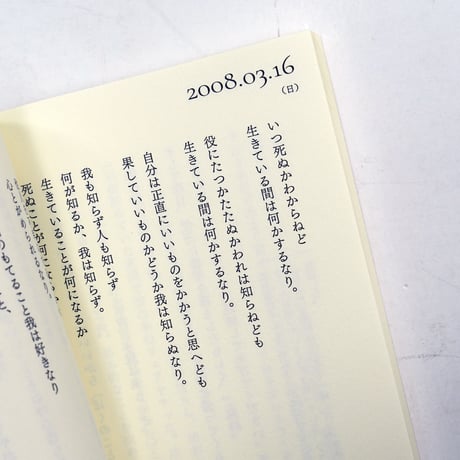 2008.03.16
(日)
いつ死ぬかわからねど
生きている間は何かするなり。
役にたつかたたぬかわれは知らねども
生きている間は何かするなり。
自分は正直にいいものをかかうと思へども
果していいものかどうか我は知らぬなり。
我も知らず人も知らず
何が知るか、我は知らず。
生きていることが何になるか
死ぬことが何に
のもてること我は好きなり